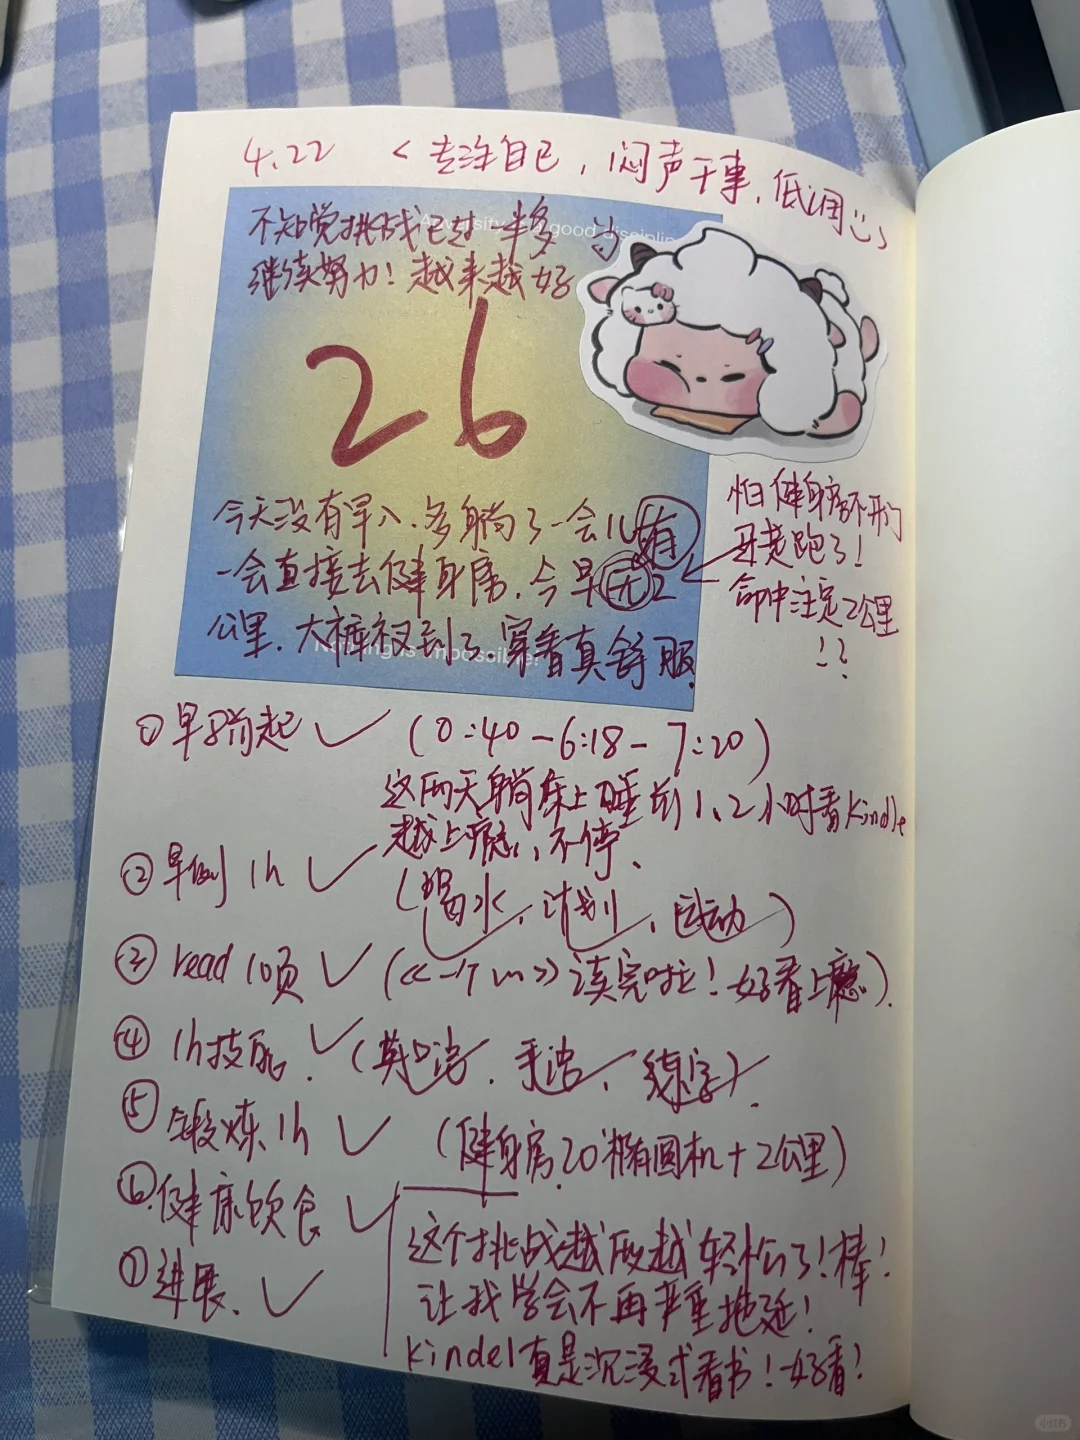 4.22 <专注自己，闷声干事，低调
不知觉挑战已过一半多
good disciplin
继续努力！越来越好
26
今天没有早八，多躺了一会儿
一会直接去健身房，今早 2
公里，大裤衩到了，穿着真舒服
Nothing is impossible!
有
无
怕健身房不开门
早跑了！
命中注定2公里
!?
①早8前起 ✓ (0:40-6:18-7:20)
这两天躺床上睡前1、2小时看kindle
越上瘾，不停、
②早 1h ✓
(喝水，计划，运动)
③ read 10页 ✓ (《 》读完啦！好看上瘾).
④ 1h技能. ✓ (英口语，手语，练字).
⑤ 锻炼1h ✓ (健身房20'椭圆机+2公里)
⑥健康饮食 ✓
⑦进展. ✓
这个挑战越后越轻松了！棒！
让我学会不再严重拖延！
kindel真是沉浸式看书！好看！
小红书